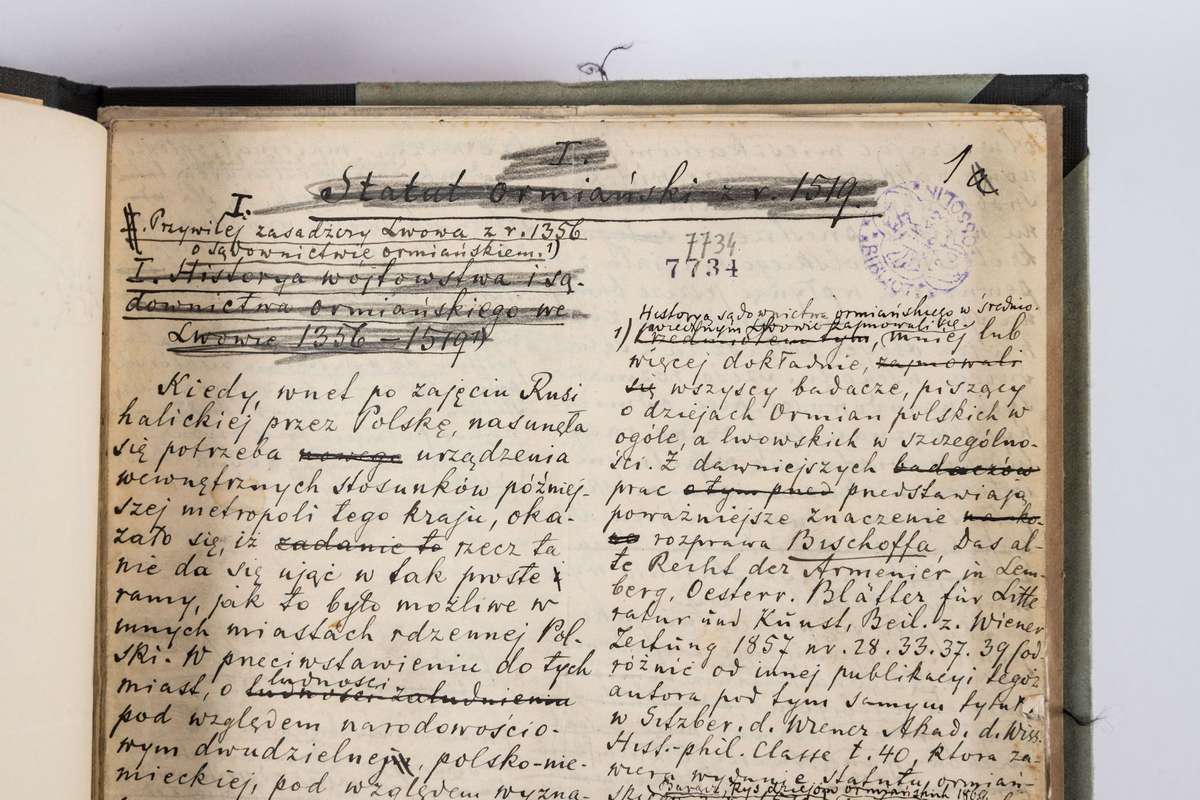 I.
Statut Ormiański z r. 1519.
1a
I.
I. Przywilej zasadźczy Lwowa z r. 1356
o sądownictwie ormiańskiem. 1)
I. Historya wójtowstwa i są-
downictwa ormiańskiego we
Lwowie 1356 – 1519 1)
Kiedy, wnet po zajęciu Rusi
halickiej przez Polskę, nasunęła
się potrzeba nowego urządzenia
wewnętrznych stosunków później-
szej metropoli tego kraju, oka-
zało się, iż zadanie to rzecz ta
nie da się ująć w tak proste
ramy, jak to było możliwe w
innych miastach rdzennej Pol-
ski. W przeciwstawieniu do tych
ludności
miast, o ludności zaludnieniu
pod względem narodowościo-
wym dwudzielnej, polsko-nie-
mieckiej, pod względem wyzna-
7734
7734
Historya sądownictwa ormiańskiego w średnio-
wiecznym Lwowie zajmowali się
1) Przedmiotem tym, mniej lub
więcej dokładnie, zajmowali
się wszyscy badacze, piszący
o dziejach Ormian polskich w
ogóle, a lwowskich w szczególno-
ści. Z dawniejszych badaczów
prac o tym przed przedstawiają
poważniejsze znaczenie
rozprawa Bischoffa, Das al-
te Recht der Armenier in Lem-
berg, Oesterr. Blätter für Litte
ratur und Kunst, Beil. z. Wiener
Zeitung 1857 nr. 28. 33. 37. 39 (od
różnić od innej publikacyi tegoż
autora pod tym samym tytuł.
w Sitzber. d. Wiener Akad. d. Wiss.
Hist.-phil. Classe t. 40, która za-
wiera wydanie statutu ormiań-
Barącz, Rys dziejów ormiańskich 1869